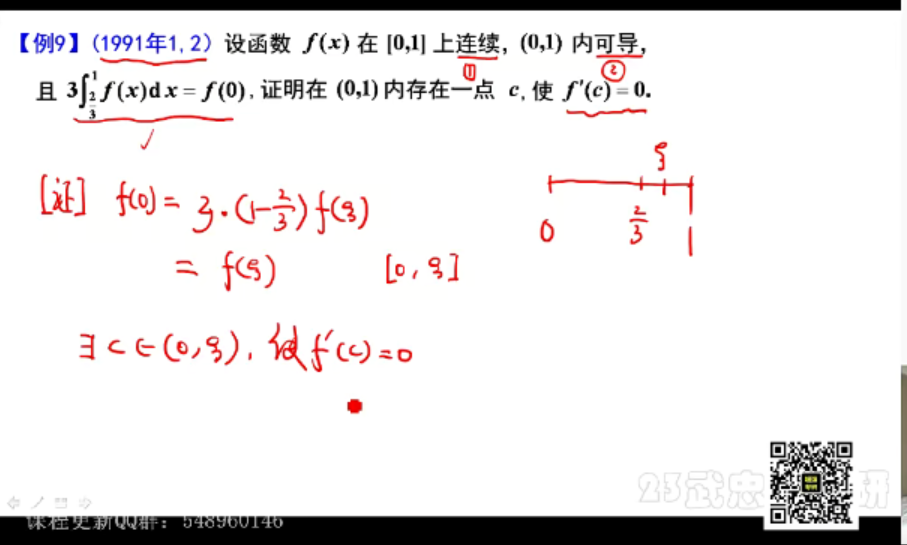 【例9】(1991年1,2) 设函数 f(x) 在 [0,1] 上连续, (0,1) 内可导,
① ②
且 3∫_{2/3}^{1} f(x)dx = f(0), 证明在 (0,1) 内存在一点 c, 使 f′(c) = 0.
[证] f(0) = 3·(1-2/3)f(ξ)
= f(ξ) [0, ξ]
ξ
0 2/3 1
∃ c ∈ (0, ξ), 使 f′(c) = 0
23武忠 研
课程更新QQ群: 548960146